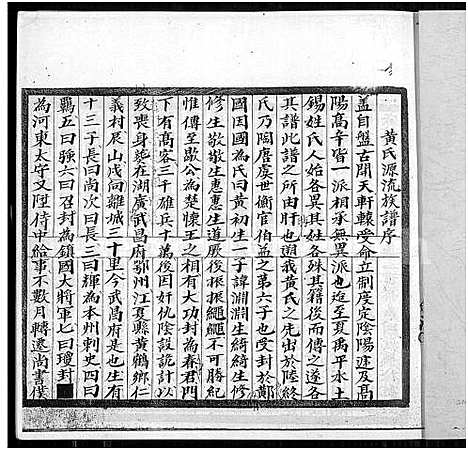 黃氏源流族譜序
蓋自盤古開天軒轅受命立制度定陰陽迨及高
陽高辛皆一派相承無異派也迨至夏禹平水土
錫姓氏人始各異其姓各殊其籍後而傳之遂各
其譜此譜之所由肝也遡我黃氏之先出於陸終
氏乃陶唐虞世衛官伯益之第六子也受封於鄖
國因國為氏曰黃初生一子諱淵淵生綺綺生修
修生敬敬生惠惠生道厥後振振繩繩不可勝紀
惟傳至歇公為楚懷王之相有大功封為春君門
下有高客三千雄兵十萬後因奸仇陰設詭計以
致喪身塟在湖廣武昌府鄂州江夏縣黃鶴鄉仁
義村辰山戌向離城三十里今武昌府是也生有
十三子長曰尚次曰長三曰輝為本州刺史四曰
羈五曰強六曰召封為鎮國大將軍七曰瓊封
為河東太守又陞侍中給事不數月轉遷尚書僕